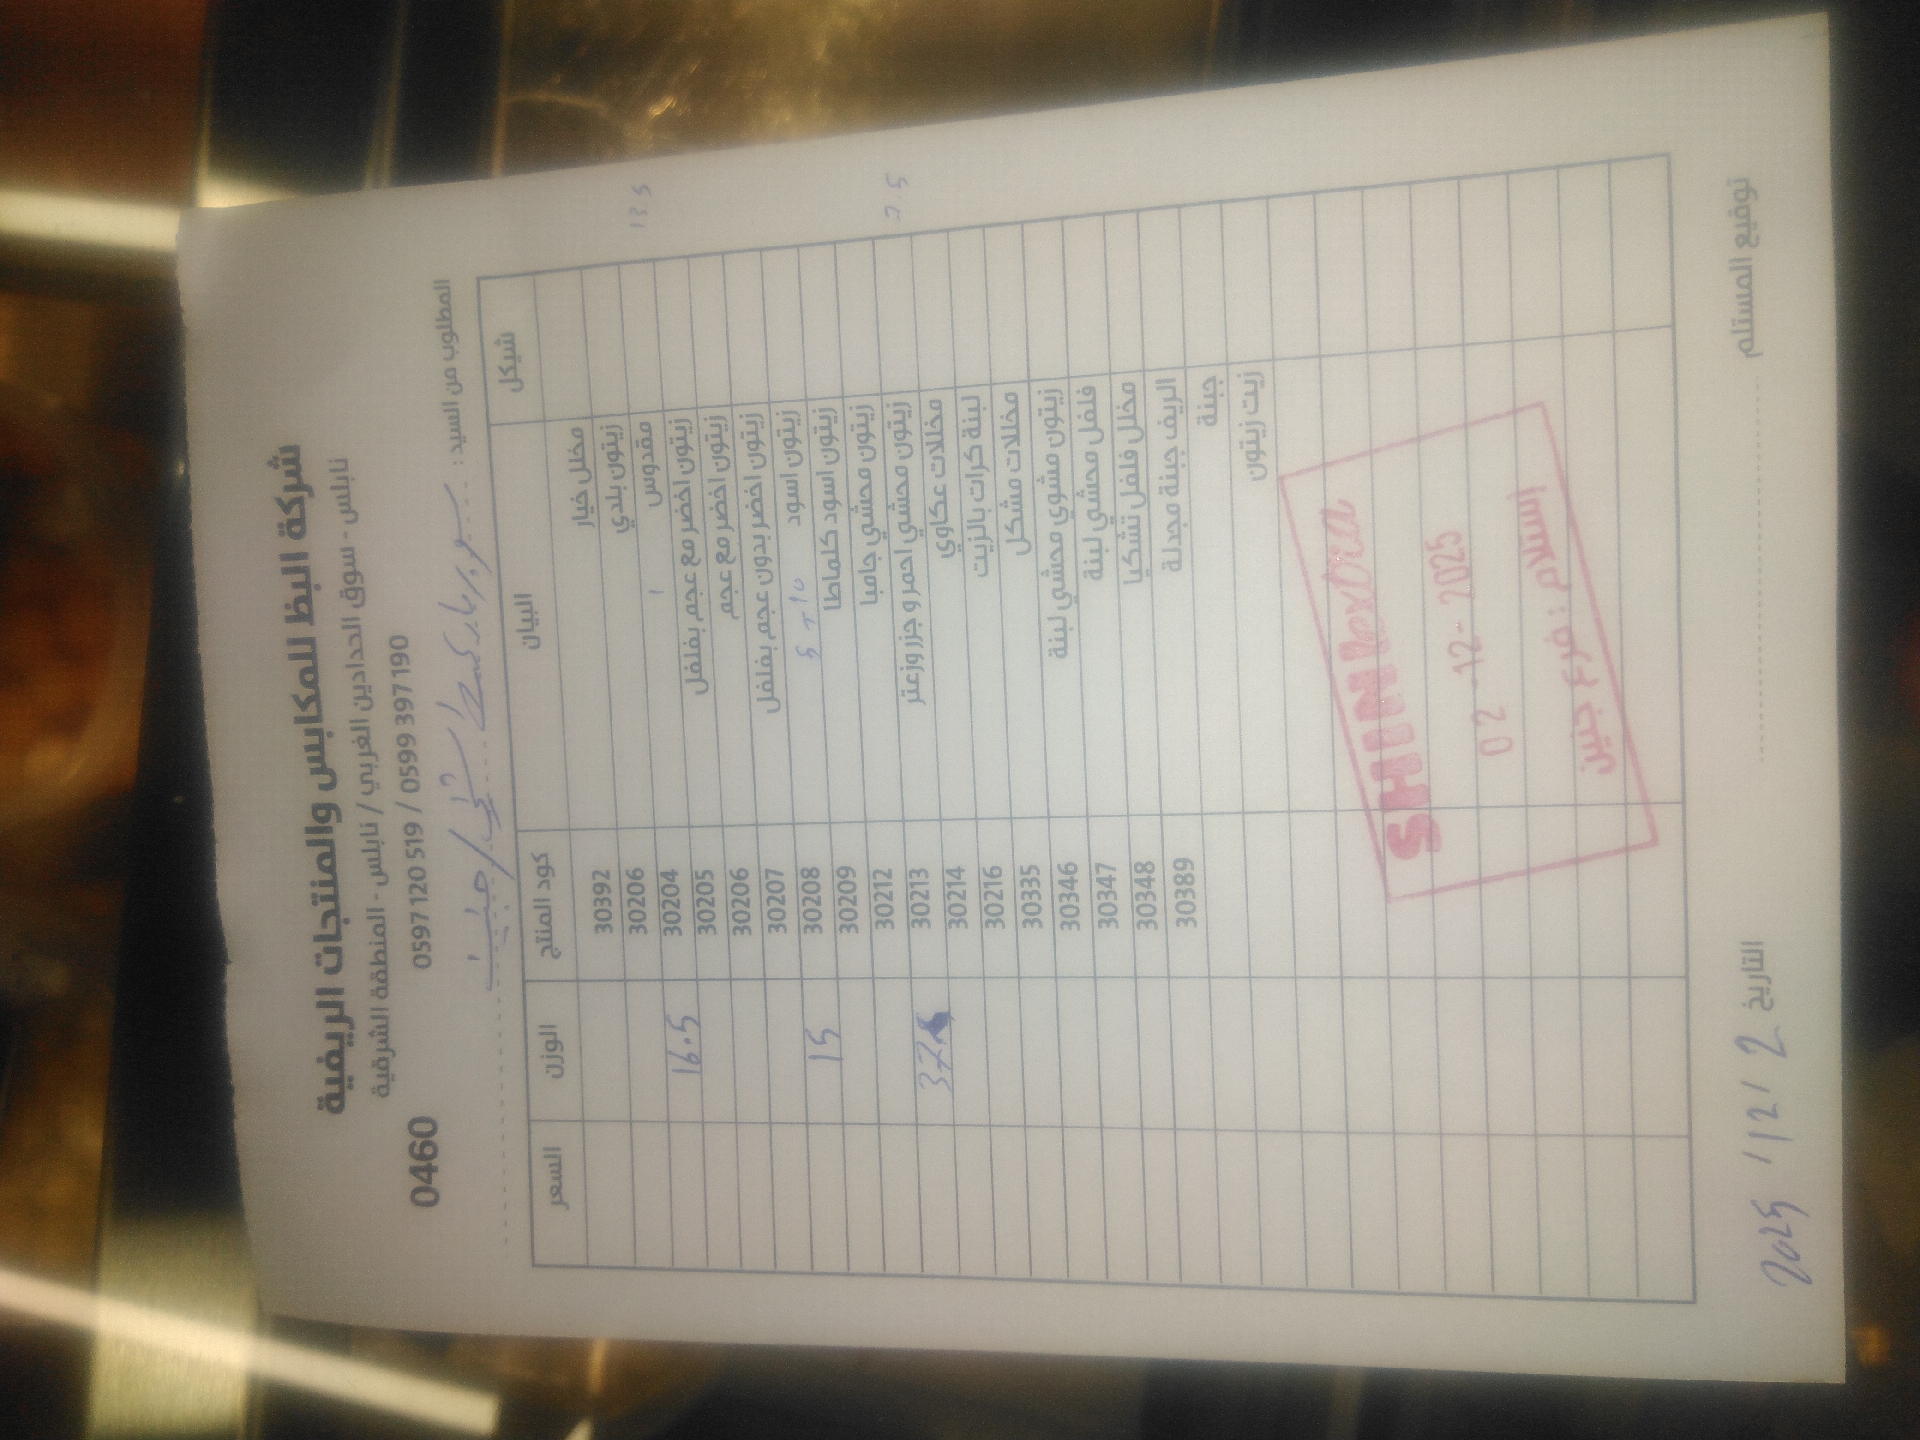 شركة البظ للمكابس والمنتجات الريفية
نابلس - سوق الحدادين الغربي / نابلس - المنطقة الشرقية
0597 120 519 / 0599 397 190
0460
المطلوب من السيد :
شيكل البيان كود المنتج الوزن السعر
مخلل خيار 30392
زيتون بلدي 30206
مقدوس 30204 16.5
زيتون اخضر مع عجم بفلفل 30205
زيتون اخضر مع عجم 30206
زيتون اخضر بدون عجم بفلفل 30207
زيتون اسود 5 + 10 30208 15
زيتون اسود كلماطا 30209
زيتون محشي جامبا 30212
زيتون محشي احمر و جزر وزعتر 30213
مخللات عكاوي 30214
لبنة كرات بالزيت 30216
مخللات مشكل 30335
زيتون مشوي محشي لبنة 30346
فلفل محشي لبنة 30347
مخلل فلفل تشكيا 30348
الريف جبنة مجدلة 30389
جبنة
زيت زيتون
SHINI
02 -12- 2025
استلام : فرع جنين
توقيع المستلم
التاريخ 2 / 12 / 2025